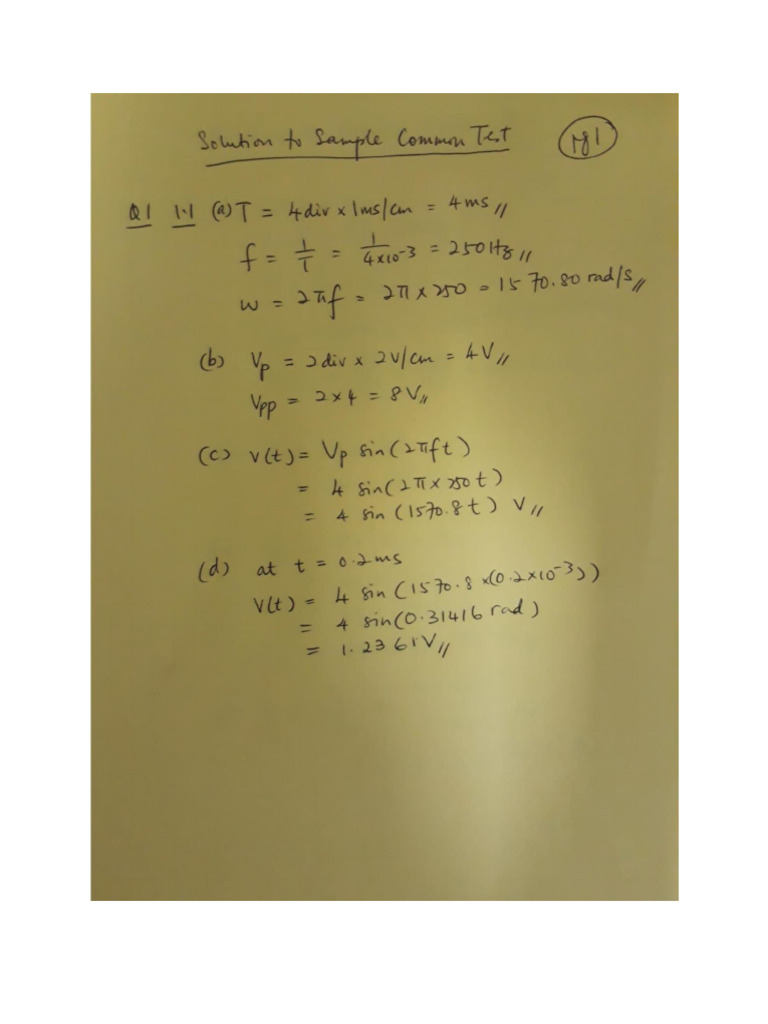 Solution to Sample Common Test pg 1
Q1 1.1 (a) T = 4div x 1ms/cm = 4ms //
f = 1/T = 1/4x10-3 = 250Hz //
w = 2πf = 2π x 250 = 1570.80 rad/s //
(b) Vp = 2div x 2V/cm = 4V //
Vpp = 2x4 = 8V //
(c) v(t) = Vp sin(2πft)
= 4 sin(2π x 250t)
= 4 sin(1570.8t) V //
(d) at t = 0.2ms
V(t) = 4 sin(1570.8 x(0.2x10-3))
= 4 sin(0.31416 rad)
= 1.2361V //